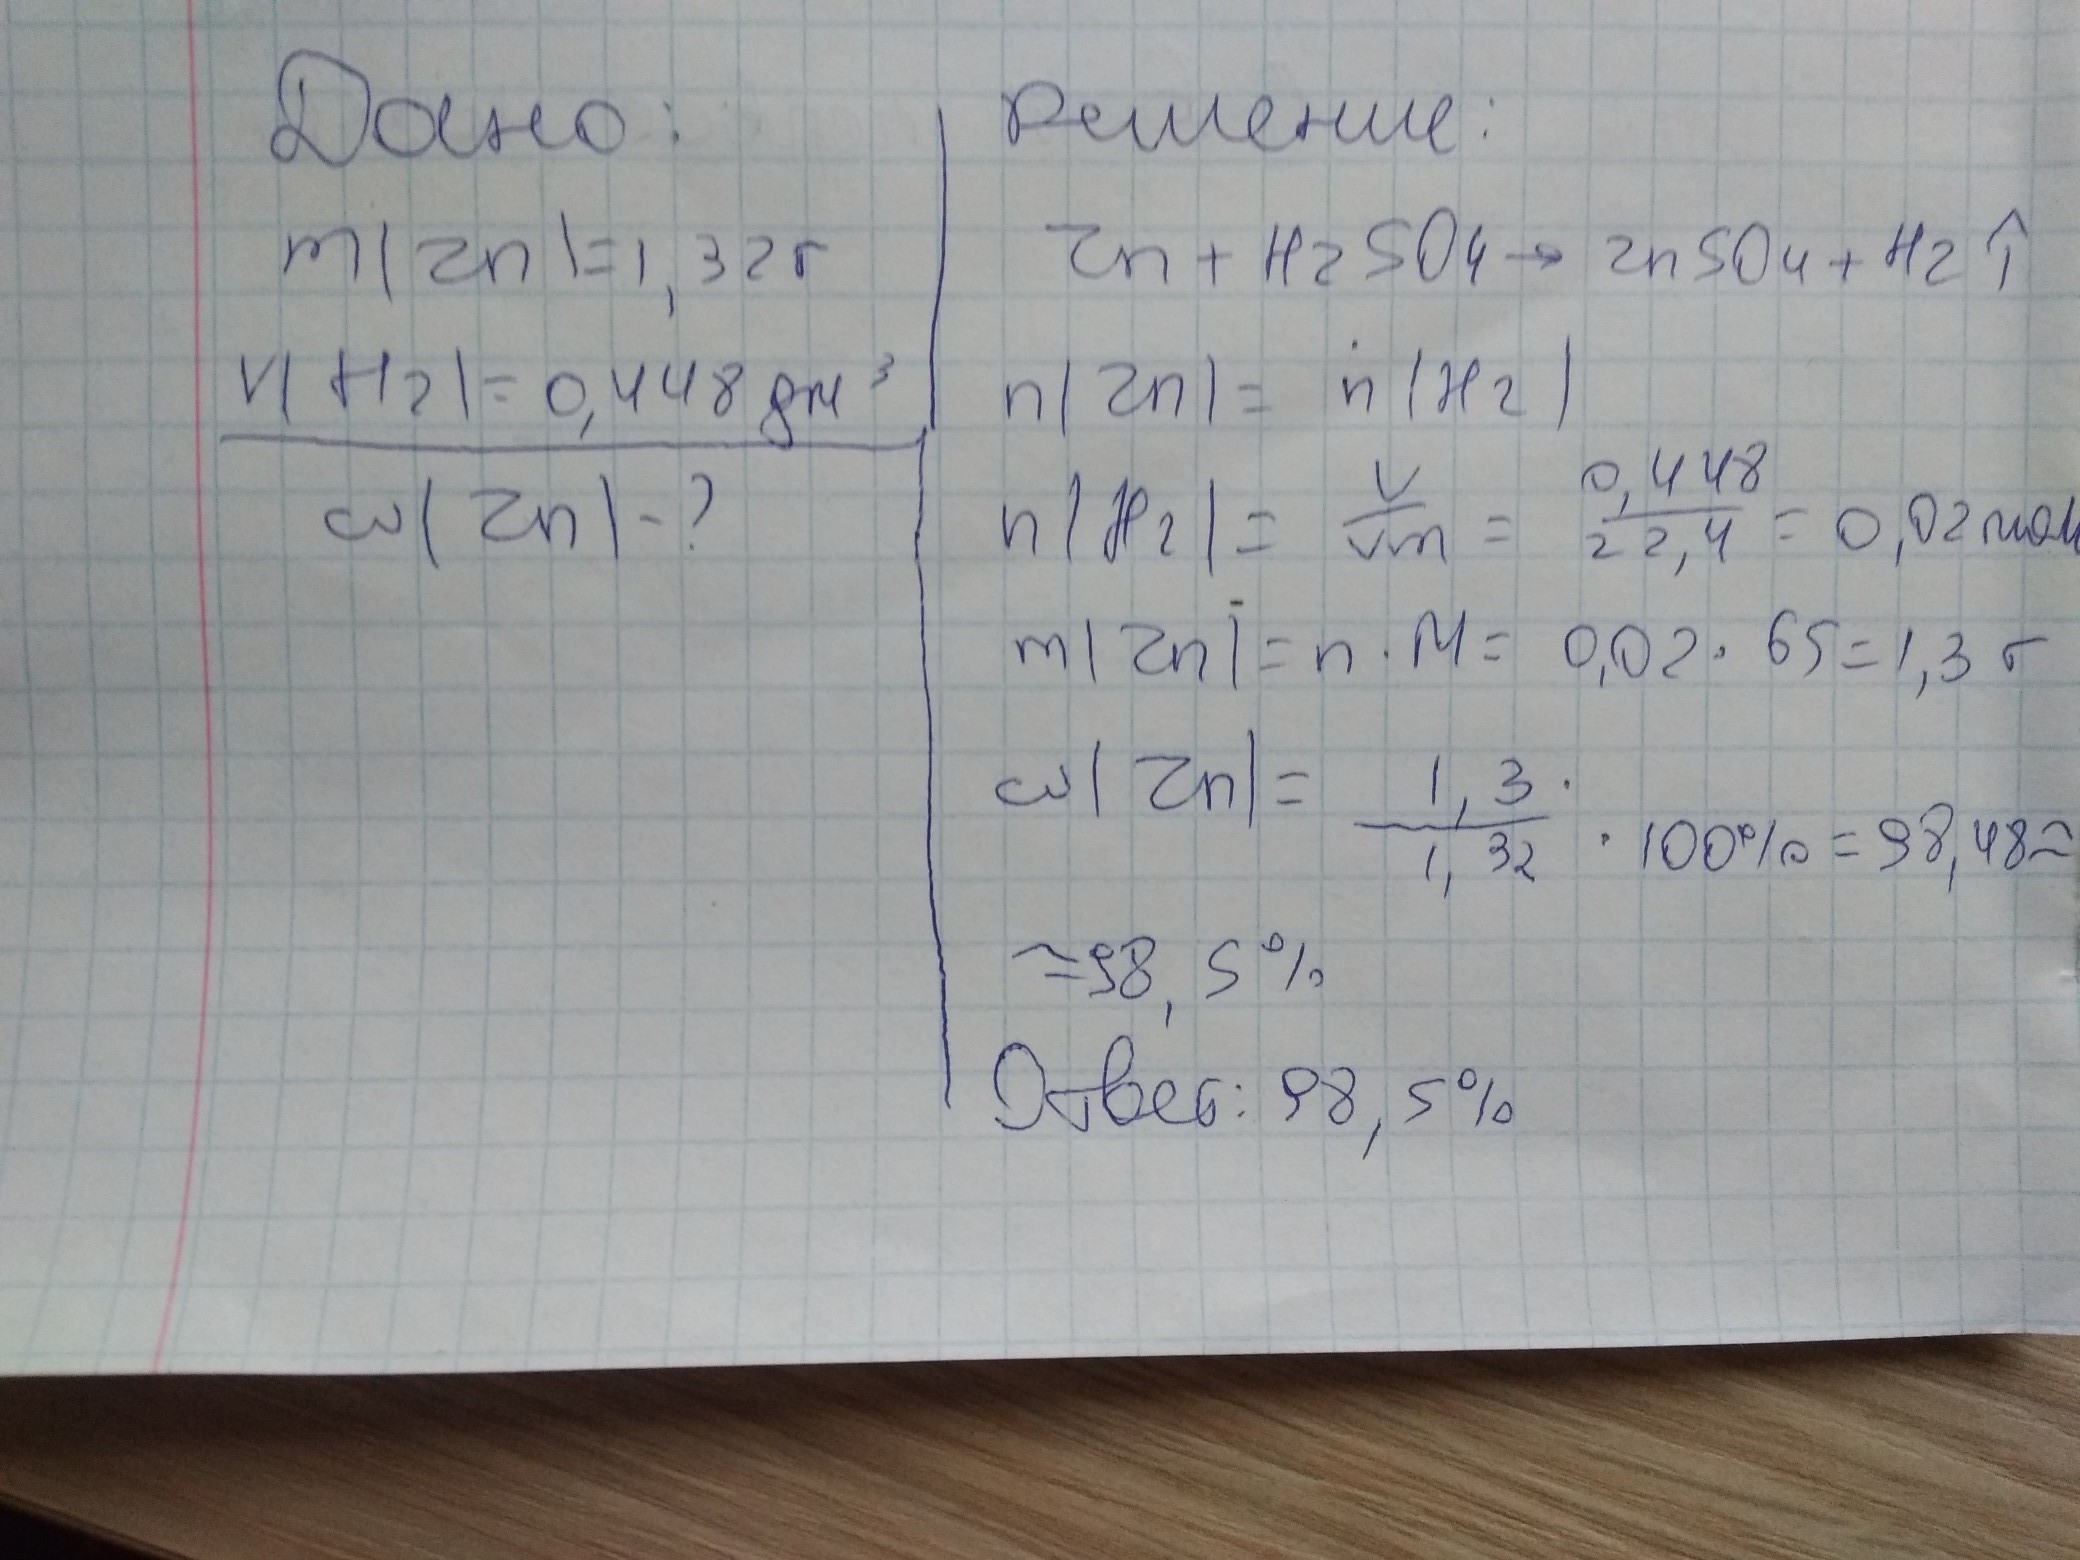 Дано:
m(Zn)=1,32г
V(H2)=0,448дм³
ω(Zn)-?
Решение:
Zn+H2SO4→ZnSO4+H2↑
n(Zn)=n(H2)
n(H2)=V/Vm=0,448/22,4=0,02мол
m(Zn)=n·M=0,02·65=1,3г
ω(Zn)=1,3/1,32·100%=98,48≈
≈98,5%
Ответ: 98,5%